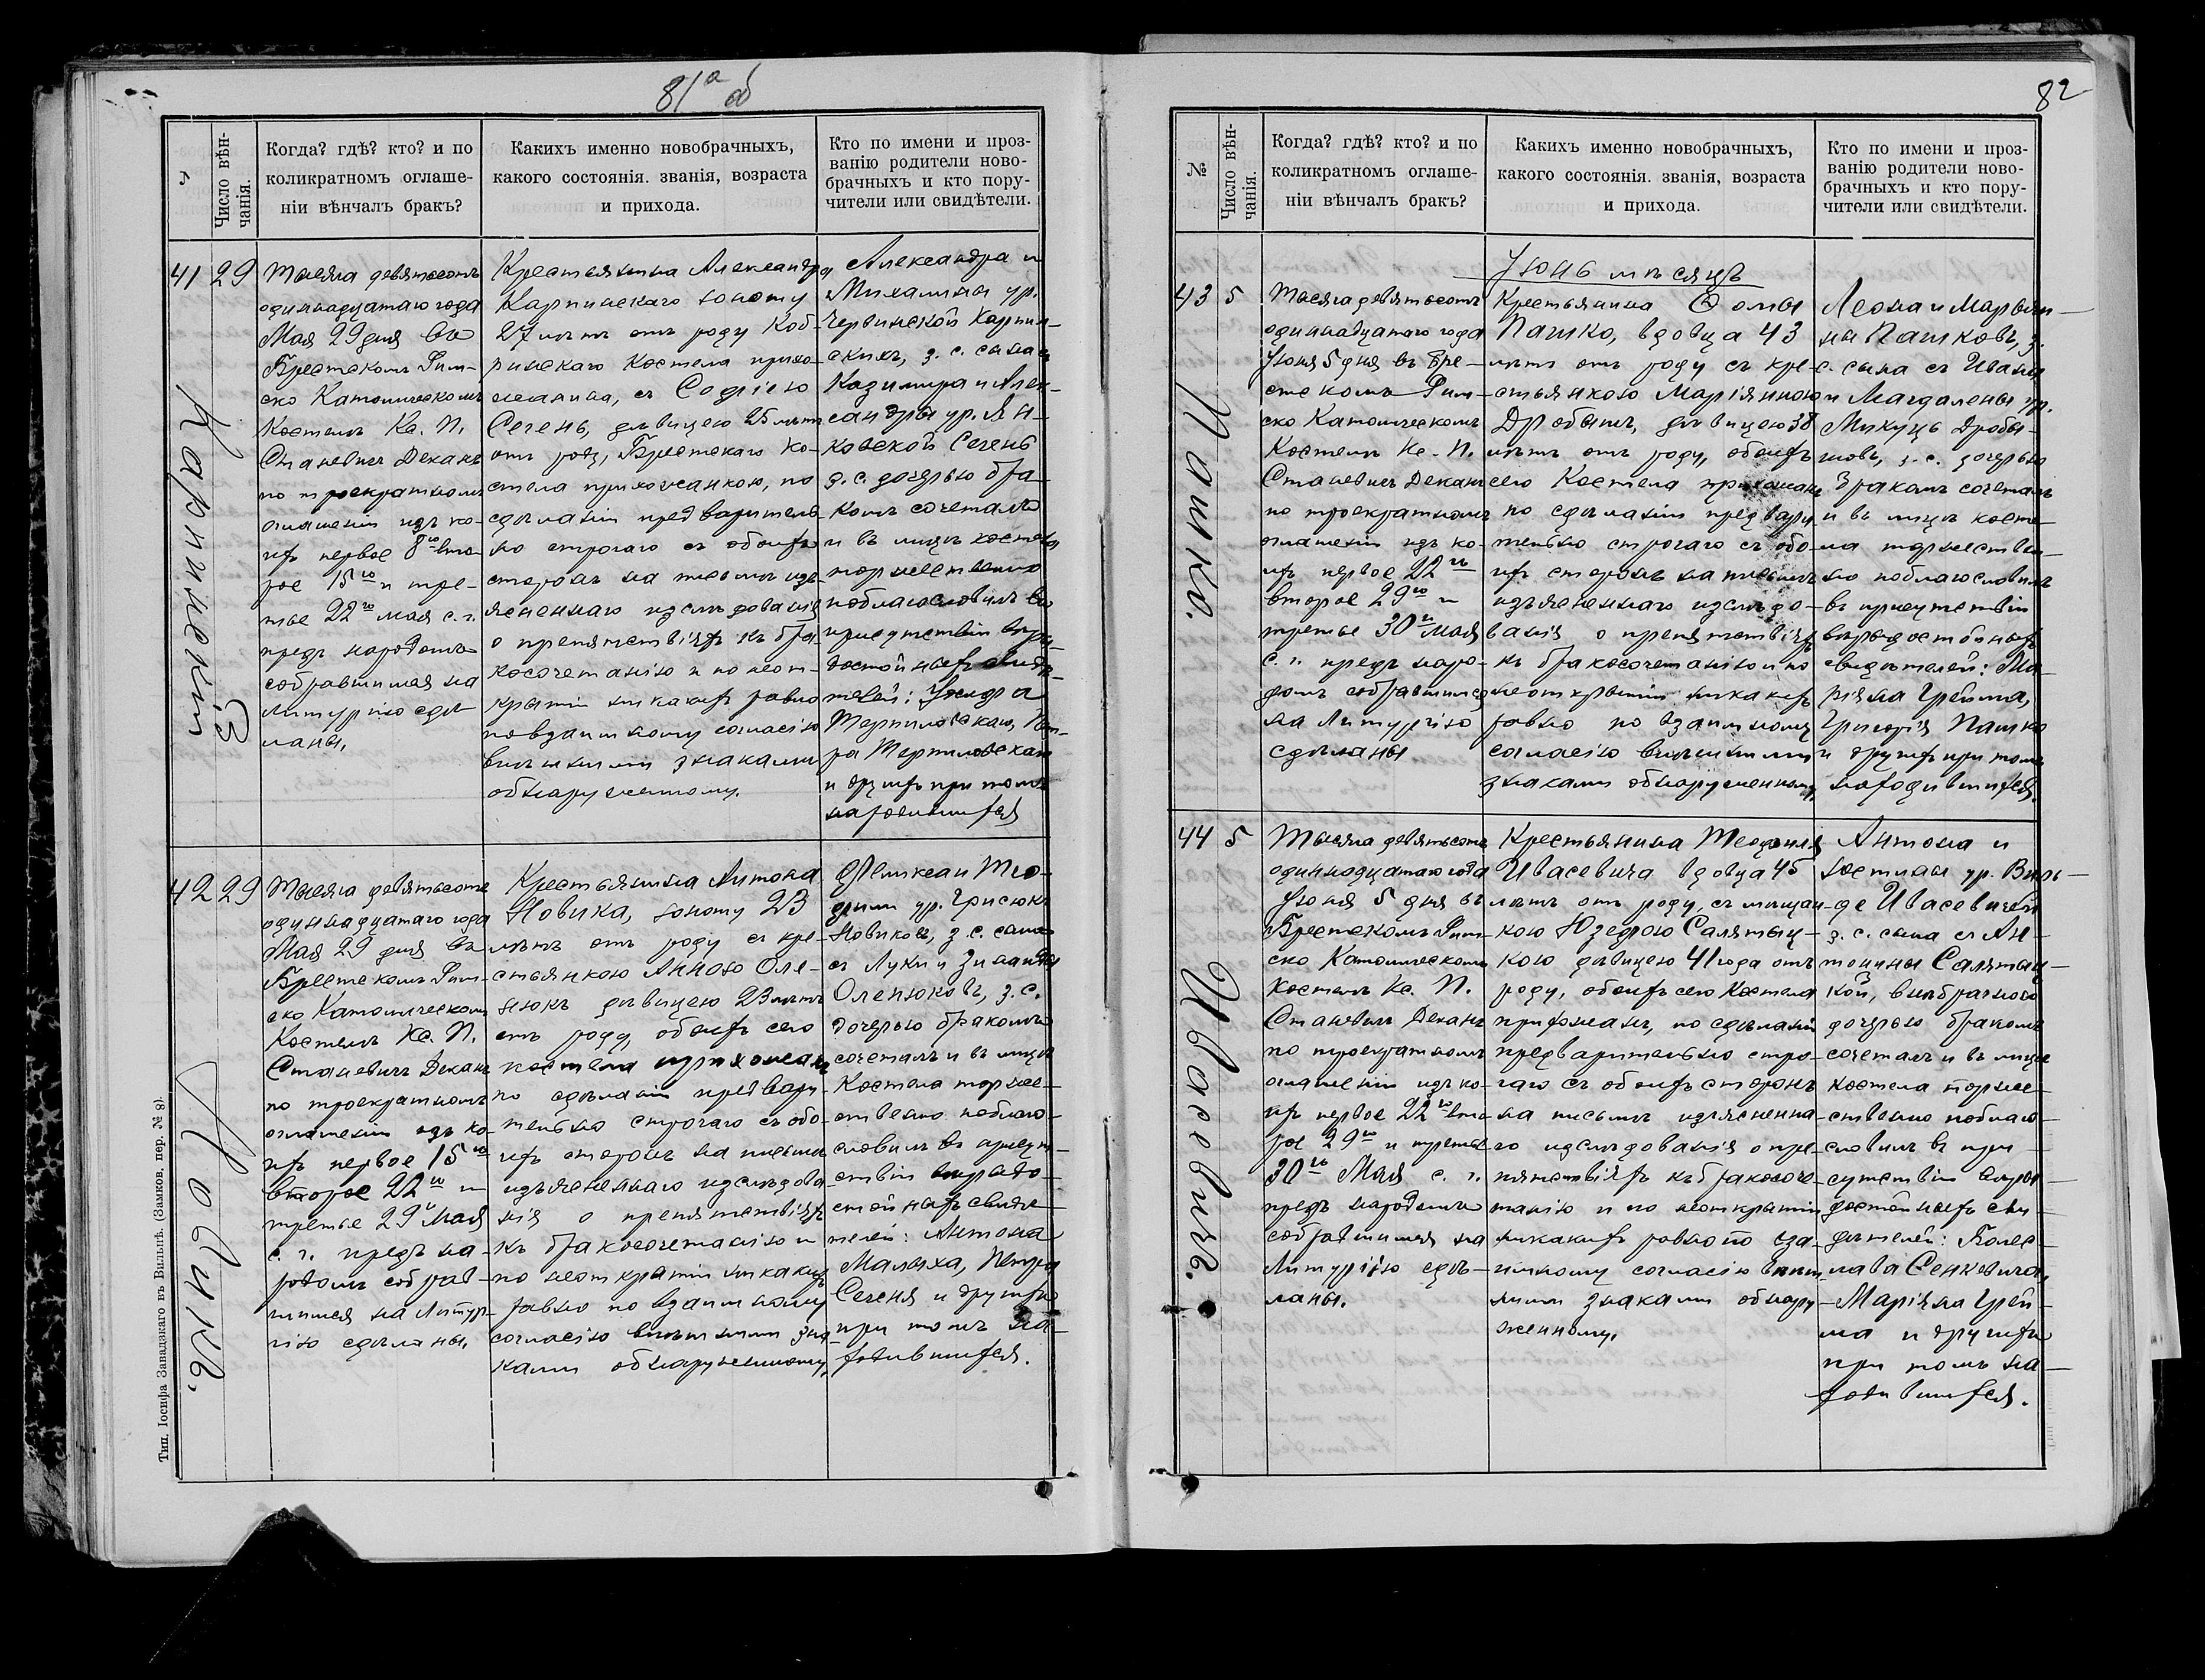 81а об
№
Число вѣн-
чанія.
Когда? гдѣ? кто? и по
коликратномъ оглаше-
ніи вѣнчалъ бракъ?
Какихъ именно новобрачныхъ,
какого состоянія. званія, возраста
и прихода.
Кто по имени и проз-
ванію родители ново-
брачныхъ и кто пору-
чители или свидѣтели.
41
29
Карпинскій
Тысяча девятьсотъ
одинадцатаго года
Мая 29 дня въ
Брестскомъ Рим-
ско Католическомъ
Костелѣ Кс. П.
Станевичъ Деканъ
по троекратномъ
оглашеніи изъ ко-
ихъ первое 8го вто-
рое 15го и тре-
тье 22го мая с. г.
предъ народомъ
собравшимся на
Литургію сдѣ-
ланы.
Крестьянина Александра
Карпинскаго юношу
27 лѣтъ отъ роду Коб-
ринскаго Костела прихо-
жанина, съ Софіею
Сегень, дѣвицею 25 лѣтъ
отъ роду, Брестскаго Ко-
стела прихожанкою, по
сдѣланіи предваритель-
но строгаго съ обоихъ
сторонъ на письмѣ изъ-
ясненнаго изслѣдованія
о препятствіяхъ къ бра-
косочетанію и по неот-
крытіи никакихъ равно
по взаимному согласію
внѣшними знаками
обнаруженному.
Александра и
Михалины ур.
Червинской Карпин-
скихъ, з. с. сына съ
Казимира и Алек-
сандры ур. Ян-
ковской Сегень
з. с. дочерью бра-
комъ сочеталъ
и въ лицѣ костела
торжественно
поблагословилъ въ
присутствіи вѣро-
достойныхъ свидѣ-
телей:
и другихъ при томъ
находившихся
42
29
Новикъ.
Тысяча девятьсотъ
одинадцатаго года
Мая 29 дня въ
Брестскомъ Рим-
ско Католическомъ
Костелѣ Кс. П.
Станевичъ Деканъ
по троекратномъ
оглашеніи изъ ко-
ихъ первое 15го
второе 22го и
третье 29го Мая
с. г. предъ на-
родомъ собрав-
шимся на Литур-
гію сдѣланы.
Крестьянина Антона
Новика, юношу 23
лѣтъ отъ роду съ кре-
стьянкою Анною Оле-
нюкъ дѣвицею 23 лѣтъ
отъ роду, обоихъ сего
костела прихожанъ
по сдѣланіи предвари-
тельно строгаго съ обо-
ихъ сторонъ на письмѣ
изъясненнаго изслѣдова
нія о препятствіяхъ
къ бракосочетанію и
по неоткрытіи никакихъ
равно по взаимному
согласію внѣшними зна
ками обнаруженному.
Феликса и Тео-
фили ур. Грисюкъ
Новиковъ, з. с. сына
съ Луки и Зиновіи
Оленюковъ, з. с.
дочерью бракомъ
сочеталъ и въ лицѣ
Костела торже-
ственно поблаго-
словилъ въ присут-
ствіи вѣродо-
стойныхъ свидѣ-
телей: Антона
Малыха, Петра
Сегеня и другихъ
при томъ на-
ходившихся.
Тип. Іосифа Завадзкаго въ Вильнѣ. (Замков. пер. № 8).
82
№
Число вѣн-
чанія.
Когда? гдѣ? кто? и по
коликратномъ оглаше-
ніи вѣнчалъ бракъ?
Какихъ именно новобрачныхъ,
какого состоянія. званія, возраста
и прихода.
Кто по имени и проз-
ванію родители ново-
брачныхъ и кто пору-
чители или свидѣтели.
Іюнь мѣсяцъ
43
5
Пашко.
Тысяча девятьсотъ
одинадцатаго года
Іюня 5 дня въ Бре-
стскомъ Рим-
ско Католическомъ
Костелѣ Кс. П.
Станевичъ Деканъ
по троекратномъ
оглашеніи изъ ко-
ихъ первое 22го
второе 29го и
третье 30го Мая
с. г. предъ наро-
домъ собравшимся
на Литургію
сдѣланы
Крестьянина Ѳомы
Пашко, вдовца 43
лѣтъ отъ роду съ кре-
стьянкою Маріянною
Дробышъ, дѣвицею 38
лѣтъ отъ роду, обоихъ
сего Костела прихожанъ
по сдѣланіи предвари
тельно строгаго съ обо-
ихъ сторонъ на письмѣ
изъясненнаго изслѣдо-
ванія о препятствіяхъ
къ бракосочетанію и по
неоткрытіи никакихъ
равно по взаимному
согласію внѣшними
знаками обнаруженному.
Леона и Марьян-
ны Пашковъ, з.
с. сына съ Ивана
и Магдалены ур.
Микуцъ Дробы-
шовъ, з. с. дочерью
бракомъ сочеталъ
и въ лицѣ косте-
ла торжествен-
но поблагословилъ
въ присутствіи
вѣродостойныхъ
свидѣтелей: Ма-
ріяна Грейма,
Григорія Пашко
и другихъ при томъ
находившихся.
44
5
Ивасевичъ.
Тысяча девятьсотъ
одинадцатаго года
Іюня 5 дня въ
Брестскомъ Рим-
ско Католическомъ
Костелѣ Кс. П.
Станевичъ Деканъ
по троекратномъ
оглашеніи изъ ко-
ихъ первое 22го вто-
рое 29го и третье
30го Мая с. г.
предъ народомъ
собравшимся на
Литургію сдѣ-
ланы.
Крестьянина Теофиля
Ивасевича вдовца 45
лѣтъ отъ роду, съ мѣщан-
кою Юзефою Салятыц-
кою дѣвицею 41 года отъ
роду, обоихъ сего Костела
прихожанъ, по сдѣланіи
предварительно стро-
гаго съ обоихъ сторонъ
на письмѣ изъясненна-
го изслѣдованія о пре-
пятствіяхъ къ бракосоче-
танію и по неоткрытіи
никакихъ равно по вза-
имному согласію внѣш-
ними знаками обнару-
женному.
Антона и
Юстины ур. Виль-
де Ивасевичей
з. с. сына съ Ан-
тонины Салятыц-
кой, внѣбрачною
дочерью бракомъ
сочеталъ и въ лицѣ
костела торже-
ственно поблаго-
словилъ въ при-
сутствіи вѣро-
достойныхъ сви-
дѣтелей: Болес-
лава Сенкевича,
Маріяна Грей-
ма и другихъ
при томъ на-
ходившихся.